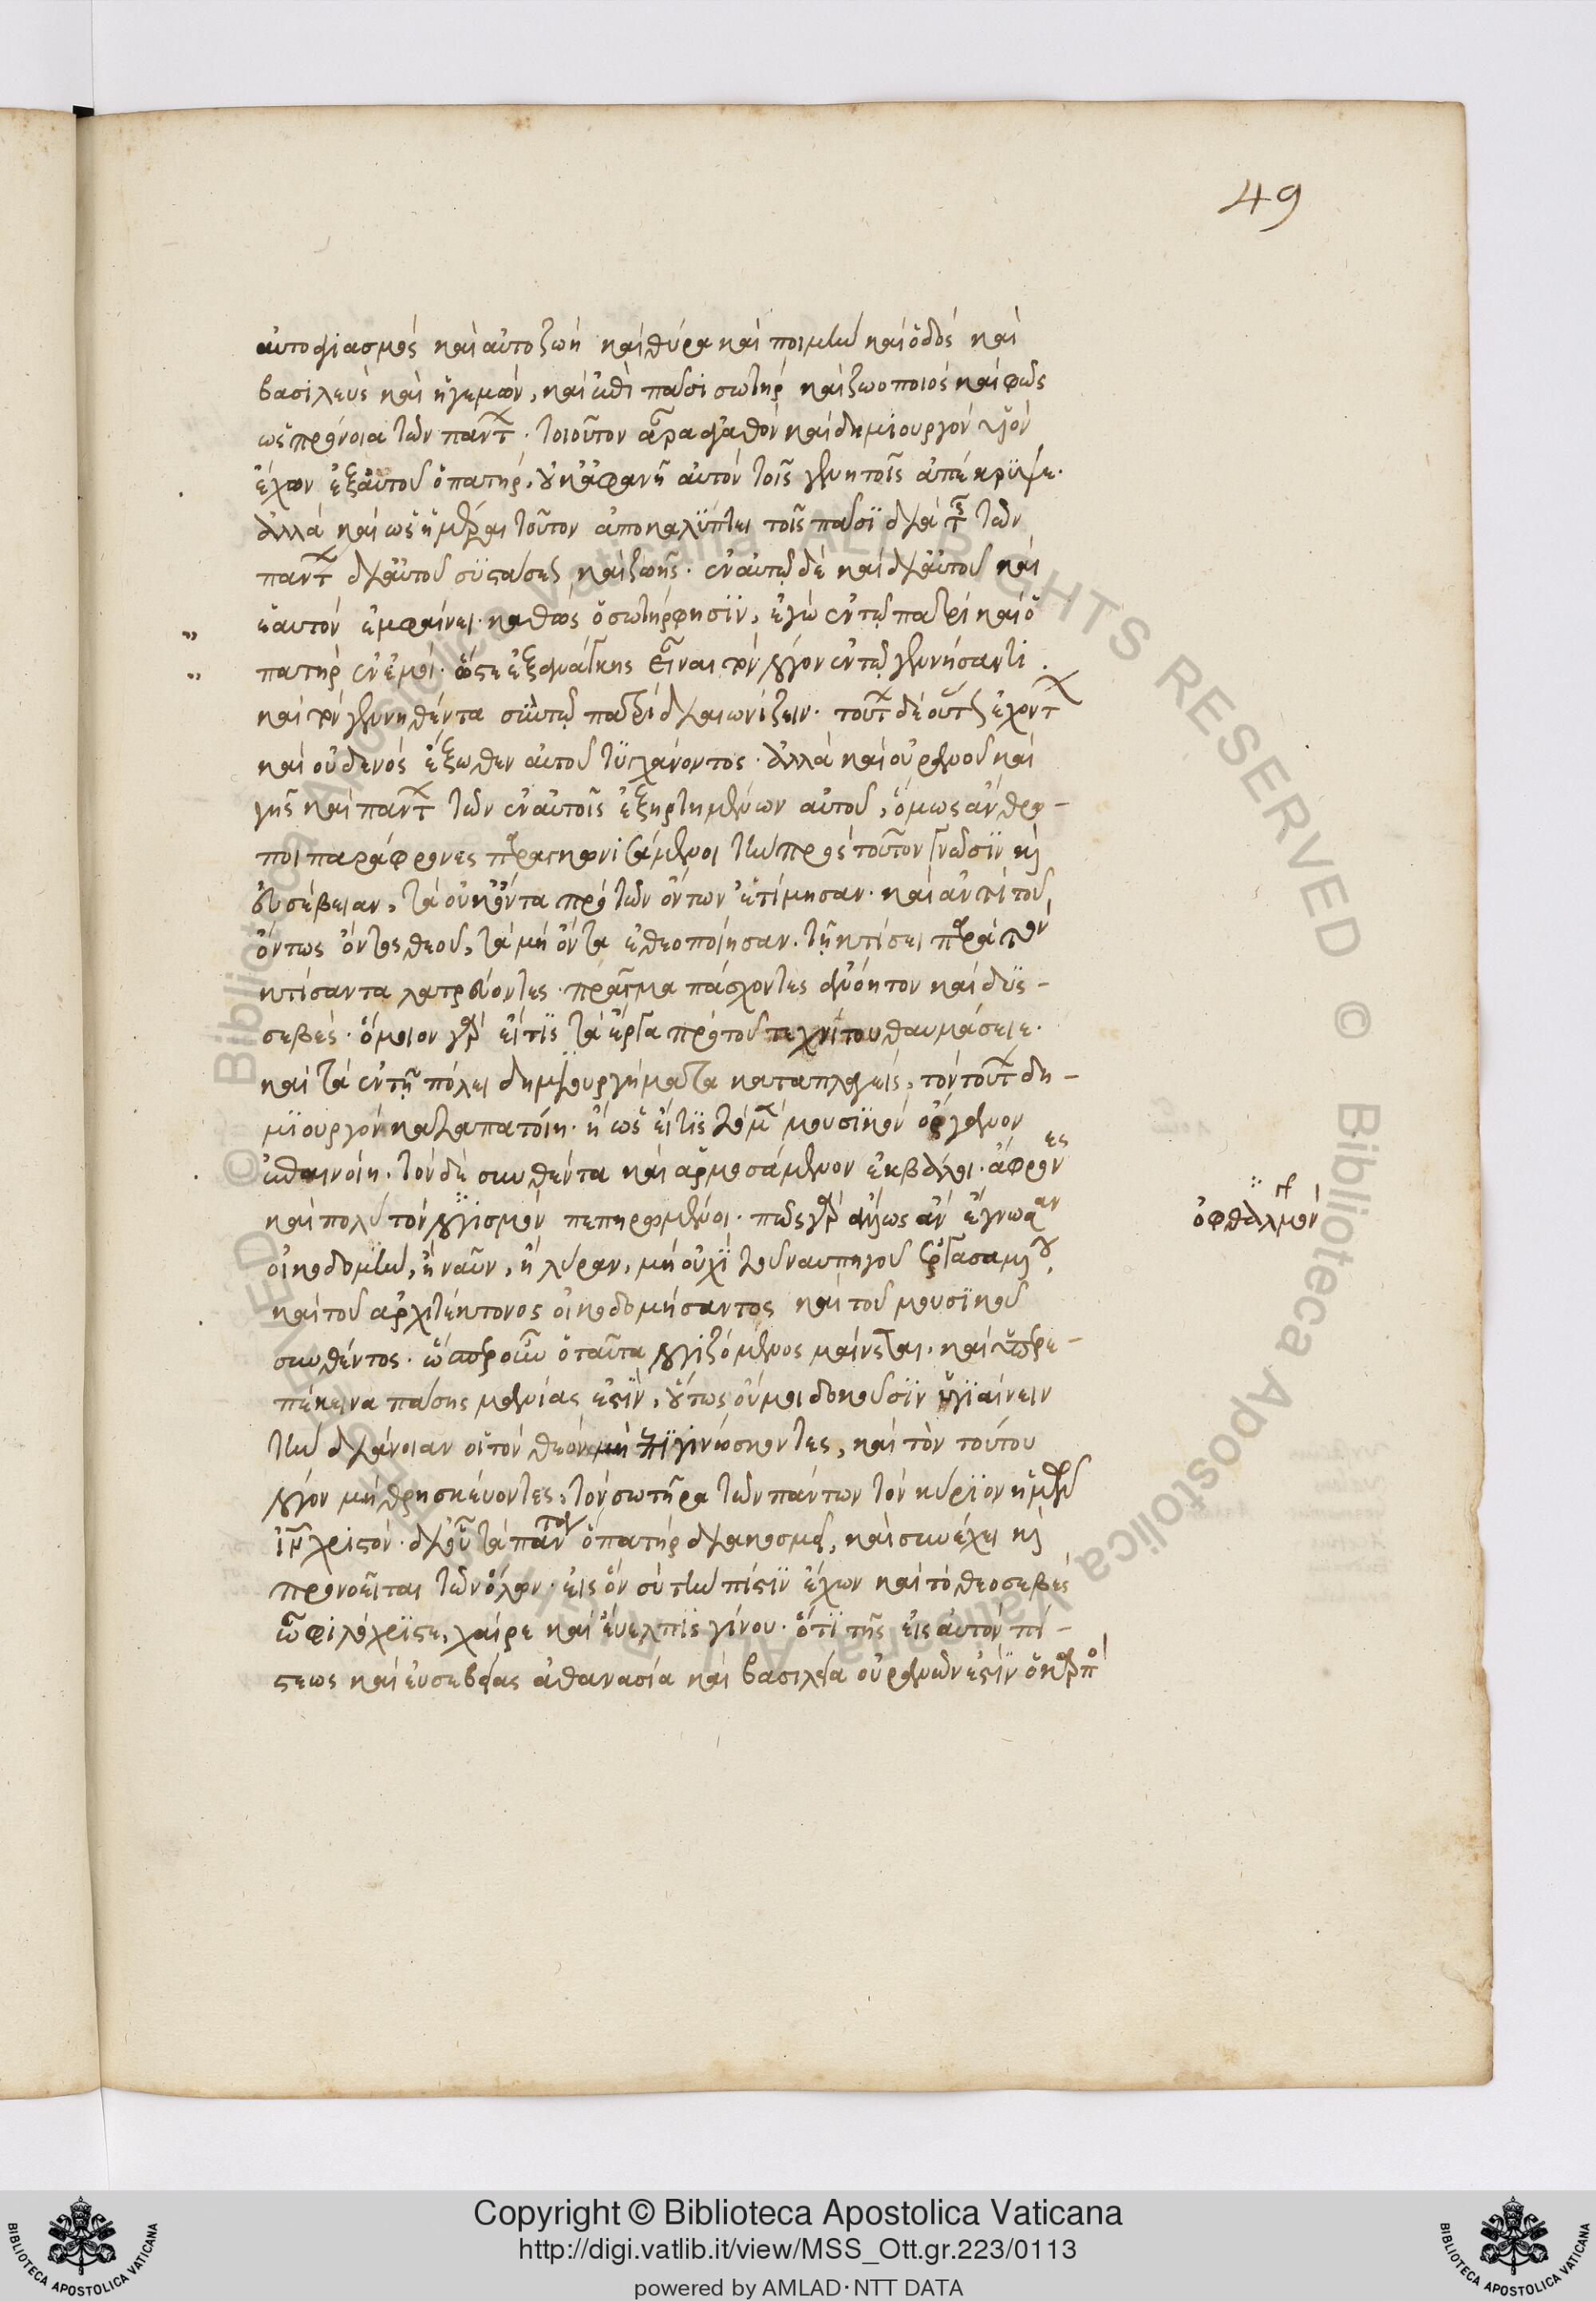 49
αὐτοαγιασμὸς καὶ αὐτοζωὴ καὶ θύρα καὶ ποιμὴν καὶ ὁδὸς καὶ
βασιλεὺς καὶ ἡγεμὼν, καὶ ἐπὶ πᾶσι σωτὴρ καὶ ζωοποιὸς καὶ φῶς
ὡς πρόνοια τῶν πάντων. τοιοῦτον ἄρα ἀγαθὸν καὶ δημιουργὸν υἱὸν
ἔχων ἐξ ἑαυτοῦ ὁ πατὴρ, οὐκ ἀφανῆ αὐτὸν τοῖς γενητοῖς ἀπέκρυψε.
ἀλλὰ καὶ ὡς ἡμέραι τοῦτον ἀποκαλύπτει τοῖς πᾶσι διὰ τῆς τῶν
πάντων δι' αὐτοῦ συστάσεως καὶ ζωῆς. ἐν αὐτῷ δὲ καὶ δι' αὐτοῦ καὶ
ἑαυτὸν ἐμφαίνει. καθὼς ὁ σωτήρ φησιν, ἐγὼ ἐν τῷ πατρὶ καὶ ὁ
πατὴρ ἐν ἐμοί. ὥστε ἐξ ἀνάγκης εἶναι τὸν λόγον ἐν τῷ γεννήσαντι.
καὶ τὸν γεννηθέντα σὺν τῷ πατρὶ διαιωνίζειν. τούτων δὲ οὕτως ἐχόντων
καὶ οὐδενὸς ἔξωθεν αὐτοῦ τυγχάνοντος. ἀλλὰ καὶ οὐρανοῦ καὶ
γῆς καὶ πάντων τῶν ἐν αὐτοῖς ἐξηρτημένων αὐτοῦ, ὅμως ἄνθρω-
ποι παράφρονες παραγκωνισάμενοι τὴν πρὸς τοῦτον γνῶσιν καὶ
εὐσέβειαν, τὰ οὐκ ὄντα πρὸ τῶν ὄντων ἐτίμησαν. καὶ ἀντὶ τοῦ
ὄντως ὄντος θεοῦ, τὰ μὴ ὄντα ἐθεοποίησαν. τῇ κτίσει παρὰ τὸν
κτίσαντα λατρεύοντες. πρᾶγμα πάσχοντες ἀνόητον καὶ δυσ-
σεβές. ὅμοιον γὰρ εἴ τις τὰ ἔργα πρὸ τοῦ τεχνίτου θαυμάσειε.
καὶ τὰ ἐν τῇ πόλει δημιουργήματα καταπλαγεὶς, τὸν τούτων δη-
μιουργὸν καταπατοίη. ἢ ὡς εἴ τις τὸ μὲν μουσικὸν ὄργανον
ἐπαινοίη. τὸν δὲ συνθέντα καὶ ἁρμοσάμενον ἐκβάλοι. ἄφρονες
καὶ πολὺ τὸν λογισμὸν πεπηρωμένοι. πῶς γὰρ ἄλλως ἂν ἔγνωσαν
οἰκοδομὴν, ἢ ναῦν, ἢ λύραν, μὴ οὐχὶ τοῦ ναυπηγοῦ ἐργασαμένου,
καὶ τοῦ ἀρχιτέκτονος οἰκοδομήσαντος καὶ τοῦ μουσικοῦ
συνθέντος. ὥσπερ οὖν ὁ ταῦτα λογιζόμενος μαίνεται. καὶ ὑπερε-
πέκεινα πάσης μανίας ἐστὶν, οὕτως οὔ μοι δοκοῦσιν ὑγιαίνειν
τὴν διάνοιαν οἱ τὸν θεὸν μὴ ἐπιγινώσκοντες, καὶ τὸν τούτου
λόγον μὴ θρησκεύοντες, τὸν σωτῆρα τῶν πάντων τὸν κύριον ἡμῶν
ἰν χριστόν. δι' οὗ τὰ πάντα ὁ πατὴρ διακοσμεῖ, καὶ συνέχει καὶ
προνοεῖται τῶν ὅλων. εἰς ὃν σὺ τὴν πίστιν ἔχων καὶ τὸ θεοσεβὲς
ὦ φιλόχριστε, χαῖρε καὶ εὔελπις γίνου. ὅτι τῆς εἰς αὐτὸν πί-
στεως καὶ εὐσεβείας ἀθανασία καὶ βασιλεία οὐρανῶν ἐστὶν ὁ καρπὸς
ὀφθαλμὸν
Copyright © Biblioteca Apostolica Vaticana
http://digi.vatlib.it/view/MSS_Ott.gr.223/0113
powered by AMLAD·NTT DATA